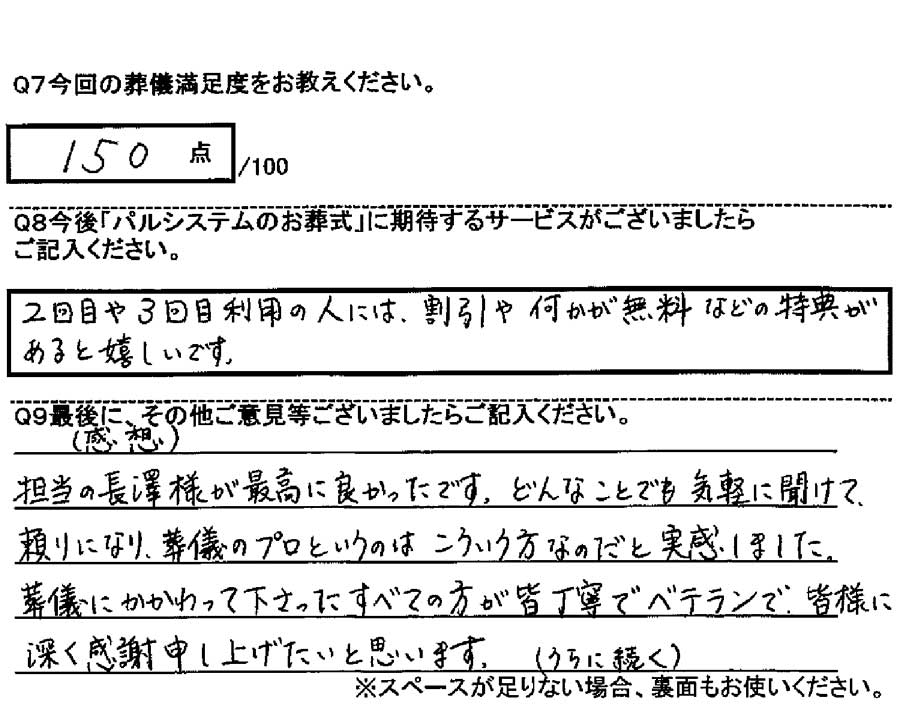 Q7今回の葬儀満足度をお教えください。
150 点 /100
Q8今後「パルシステムのお葬式」に期待するサービスがございましたら
ご記入ください。
2回目や3回目利用の人には、割引や何かが無料などの特典が
あると嬉しいです。
Q9最後に、その他ご意見等ございましたらご記入ください。
(感想)
担当の長澤様が最高に良かったです。どんなことでも気軽に聞けて、
頼りになり、葬儀のプロというのはこういう方なのだと実感しました。
葬儀にかかわって下さったすべての方が皆丁寧でベテランで、皆様に
深く感謝申し上げたいと思います。(うらに続く)
※スペースが足りない場合、裏面もお使いください。